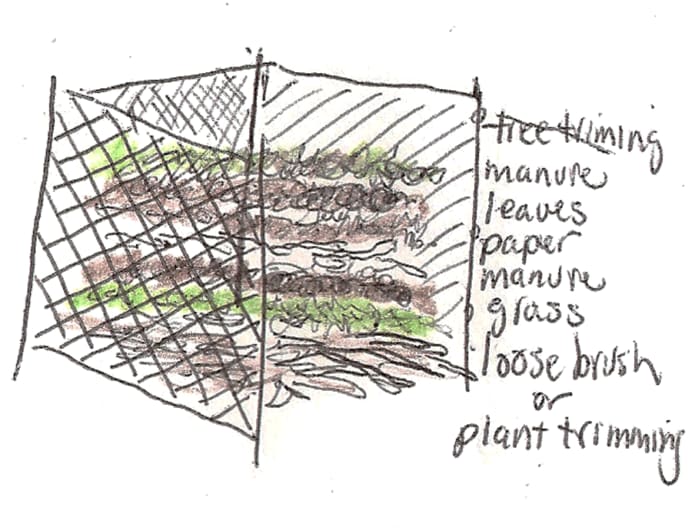 tree triming
manure
leaves
paper
manure
grass
loose brush
or
plant trimming